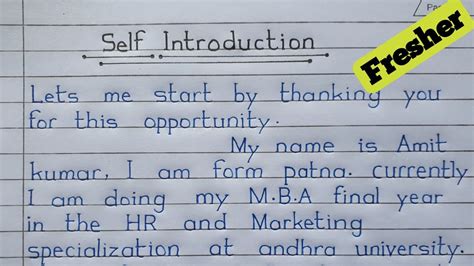 Pa
Fresher
Self Introduction
Lets me start by thanking you
for this opportunity.
My name is Amit
kumar, I am form patna. currently
I am doing my M.B.A final year
in the HR and Marketing
specialization at andhra university.